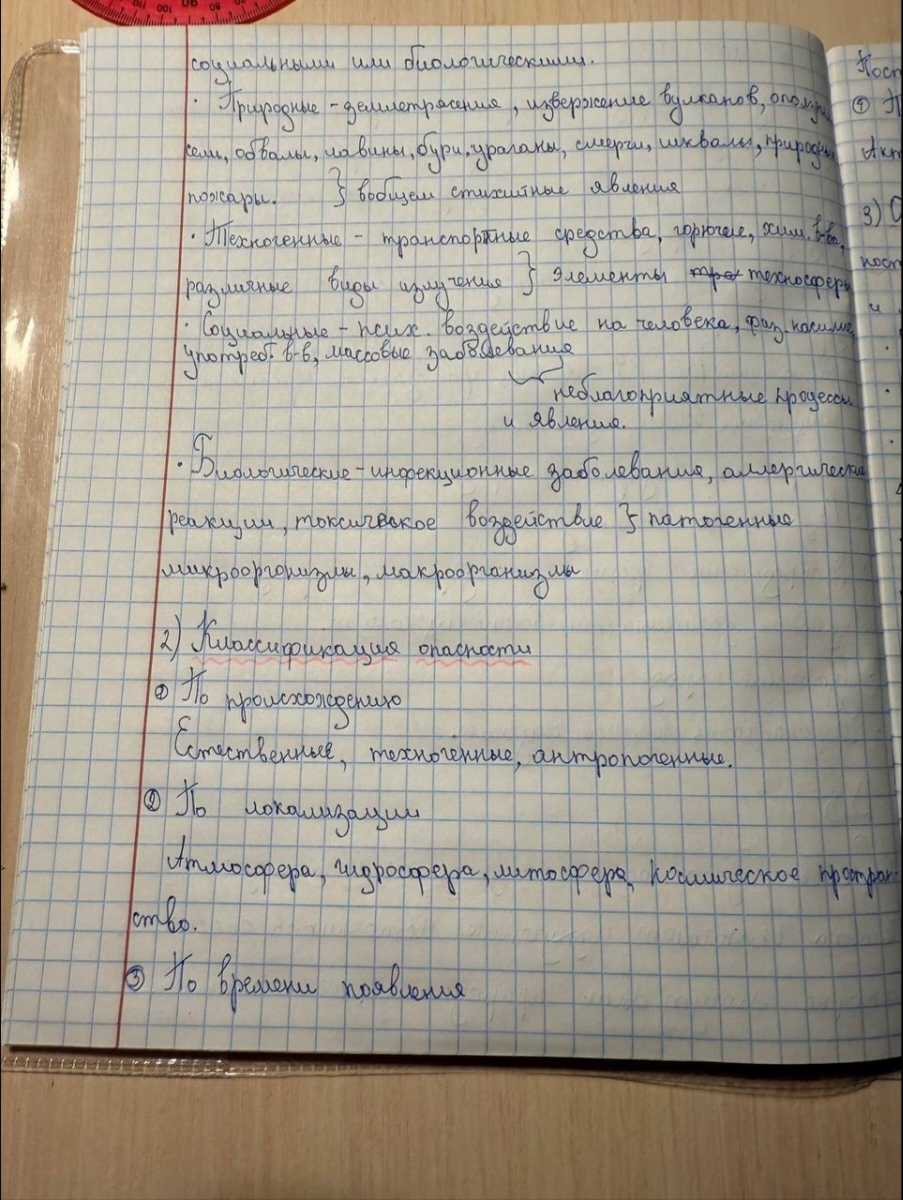 социальными или биологическими.
· Природные - землетрясения, извержение вулканов, оползни
сели, обвалы, лавины, бури, ураганы, смерчи, шквалы, природные
пожары. } вобщем стихийные явления
· Техногенные - транспортные средства, горючее, хим. в-ва,
различные виды излучения } элементы техносферы
· Социальные - псих. воздействие на человека, физ. насилие,
употреб. в-в, массовые заболевания
неблагоприятные процессы
и явления.
· Биологические - инфекционные заболевания, аллергические
реакции, токсическое воздействие } патогенные
микроорганизмы, макроорганизмы
2) Классификация опасности
① По происхождению
Естественные, техногенные, антропогенные.
② По локализации
Атмосфера, гидросфера, литосфера, космическое простран-
ство.
③ По времени появления
Пост
① П
Акт
3) О
ност
и